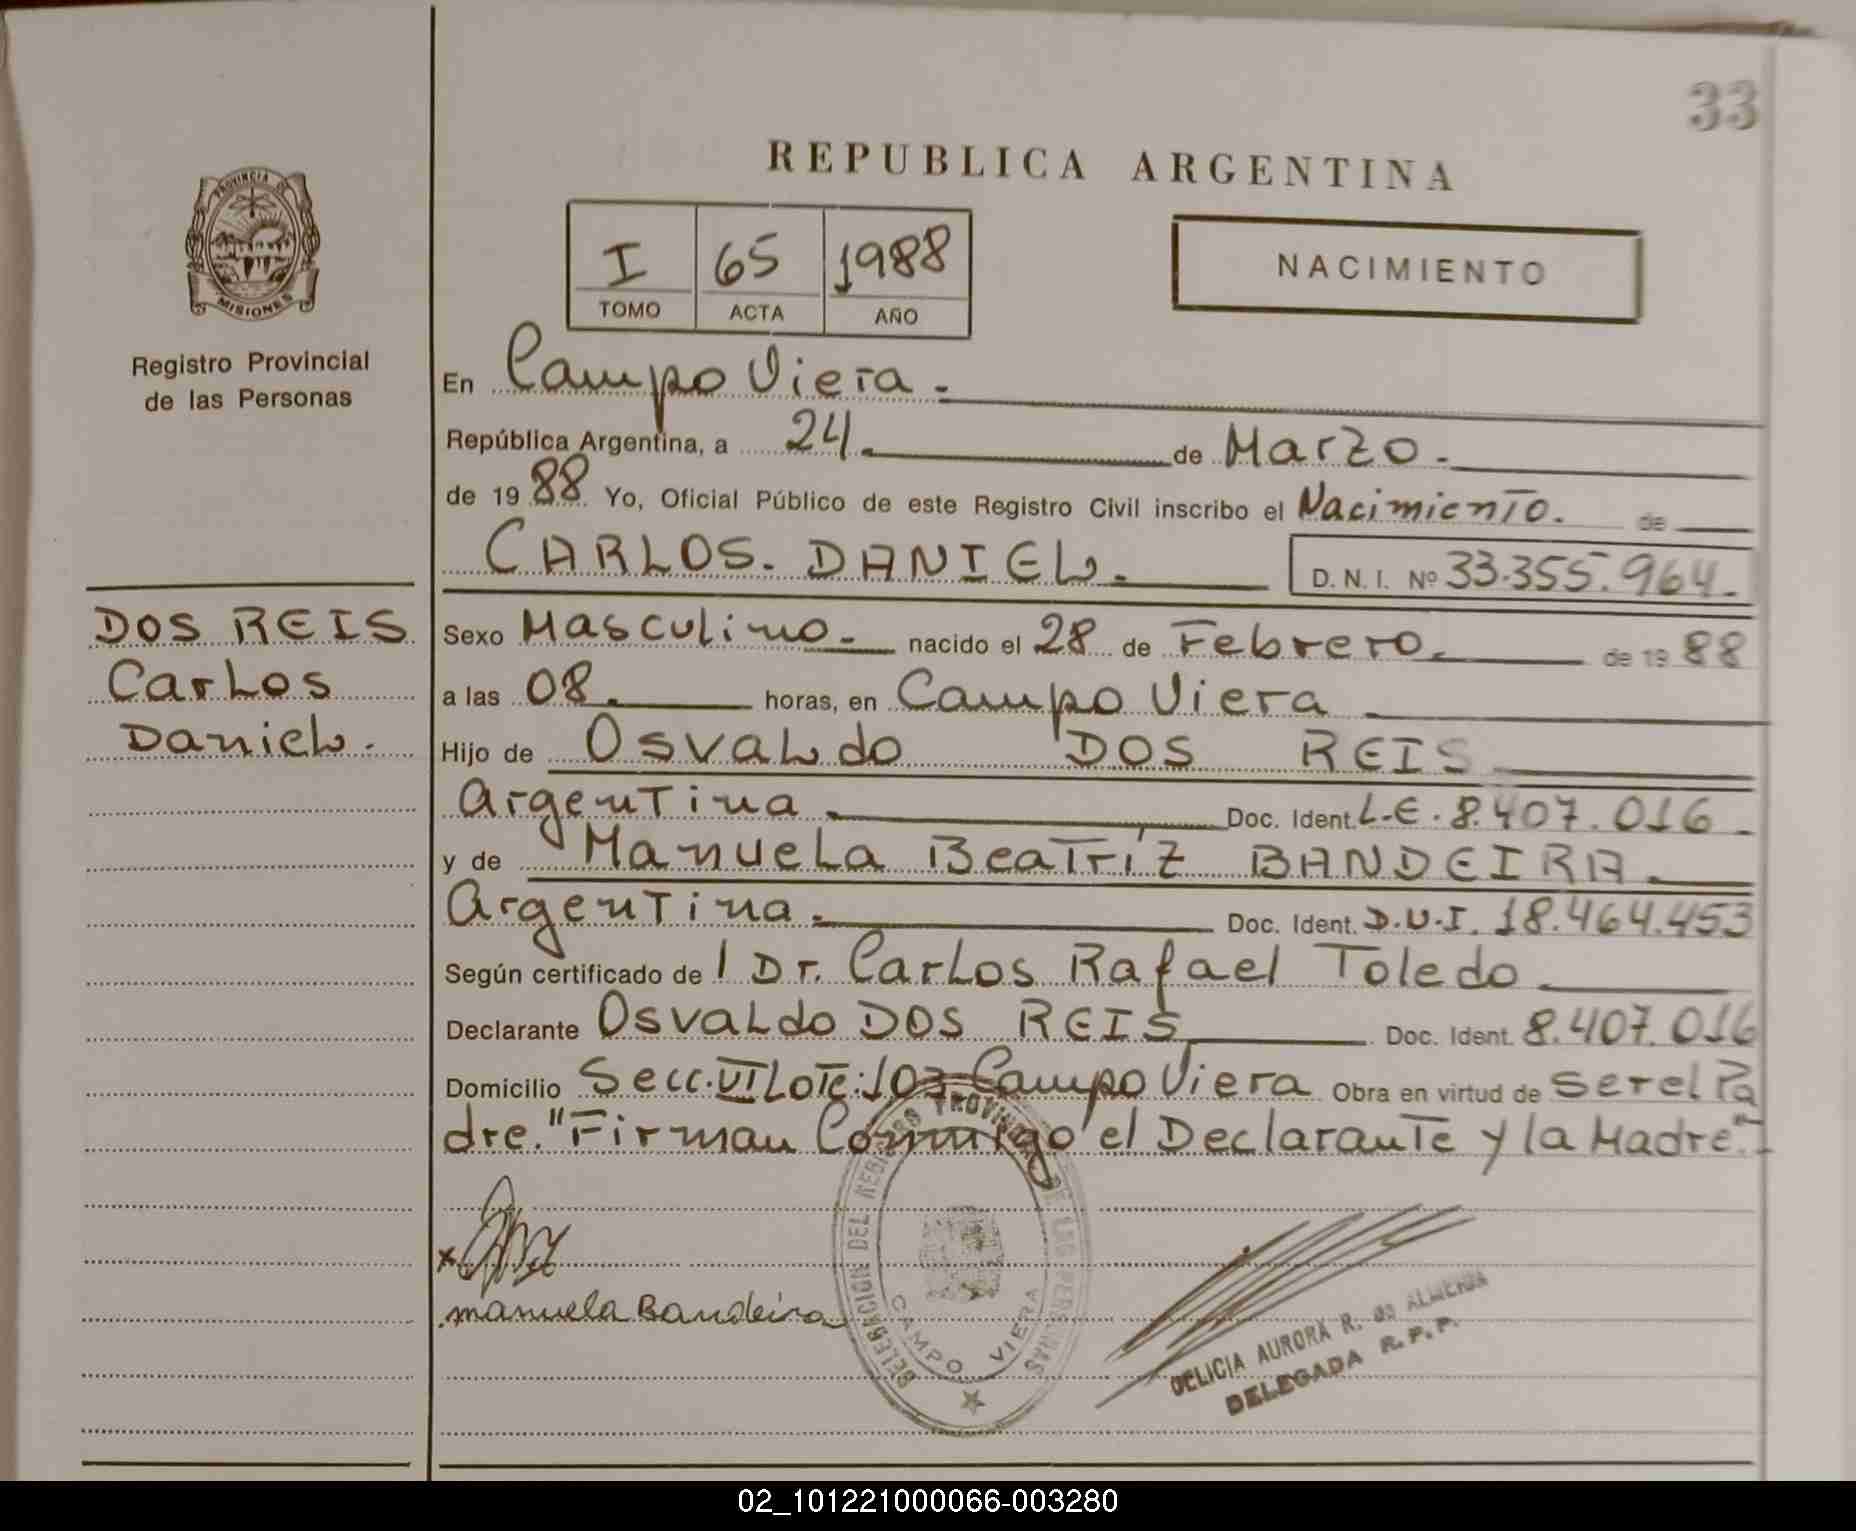 33
REPUBLICA ARGENTINA
PROVINCIA DE
MISIONES
Registro Provincial
de las Personas
I 65 1988
TOMO ACTA AÑO
NACIMIENTO
En Campo Viera.
República Argentina, a 24 de Marzo.
de 19 88 Yo, Oficial Público de este Registro Civil inscribo el Nacimiento. de
CARLOS. DANIEL. D. N. I. Nº 33.355.964.
DOS REIS
Carlos
Daniel.
Sexo Masculino. nacido el 28 de Febrero. de 19 88
a las 08. horas, en Campo Viera
Hijo de Osvaldo DOS REIS
Argentina. Doc. Ident. L.E. 8.407.016.
y de Manuela Beatríz BANDEIRA.
Argentina. Doc. Ident. D.N.I. 18.464.453
Según certificado de l Dr. Carlos Rafael Toledo
Declarante Osvaldo DOS REIS Doc. Ident. 8.407.016
Domicilio Secc. VI Lote: 103 Campo Viera Obra en virtud de ser el Pa
dre. "Firman Conmigo el Declarante y la Madre".
manuela Bandeira
DELEGACION DEL REGISTRO PROVINCIAL DE LAS PERSONAS
CAMPO VIERA
DELICIA AURORA R. de ALMEIDA
DELEGADA R. P. P.
02_101221000066-003280